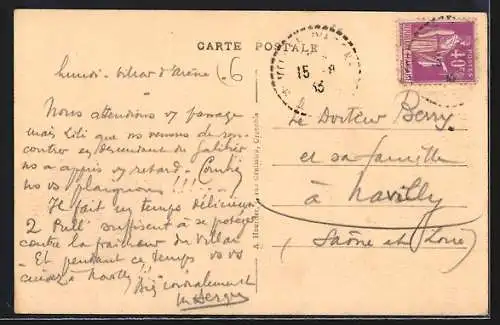 CARTE POSTALE
Lundi - Villar d'Arène
15 -8
33
Nous attendions vs passage
mais Lili que ns venons de ren-
contrer en descendant du Galibier
ns a appris vs retard. Combien
ns vs plaignons !!!
Il fait un temps délicieux
2 Pull suffisent à se protéger
contre la fraîcheur du Villar
Et pendant ce temps vs vs
cuisez à Navilly !!
Bien cordialement
Le Docteur Berry
et sa famille
à Navilly
(Saône et Loire)
Grenoble